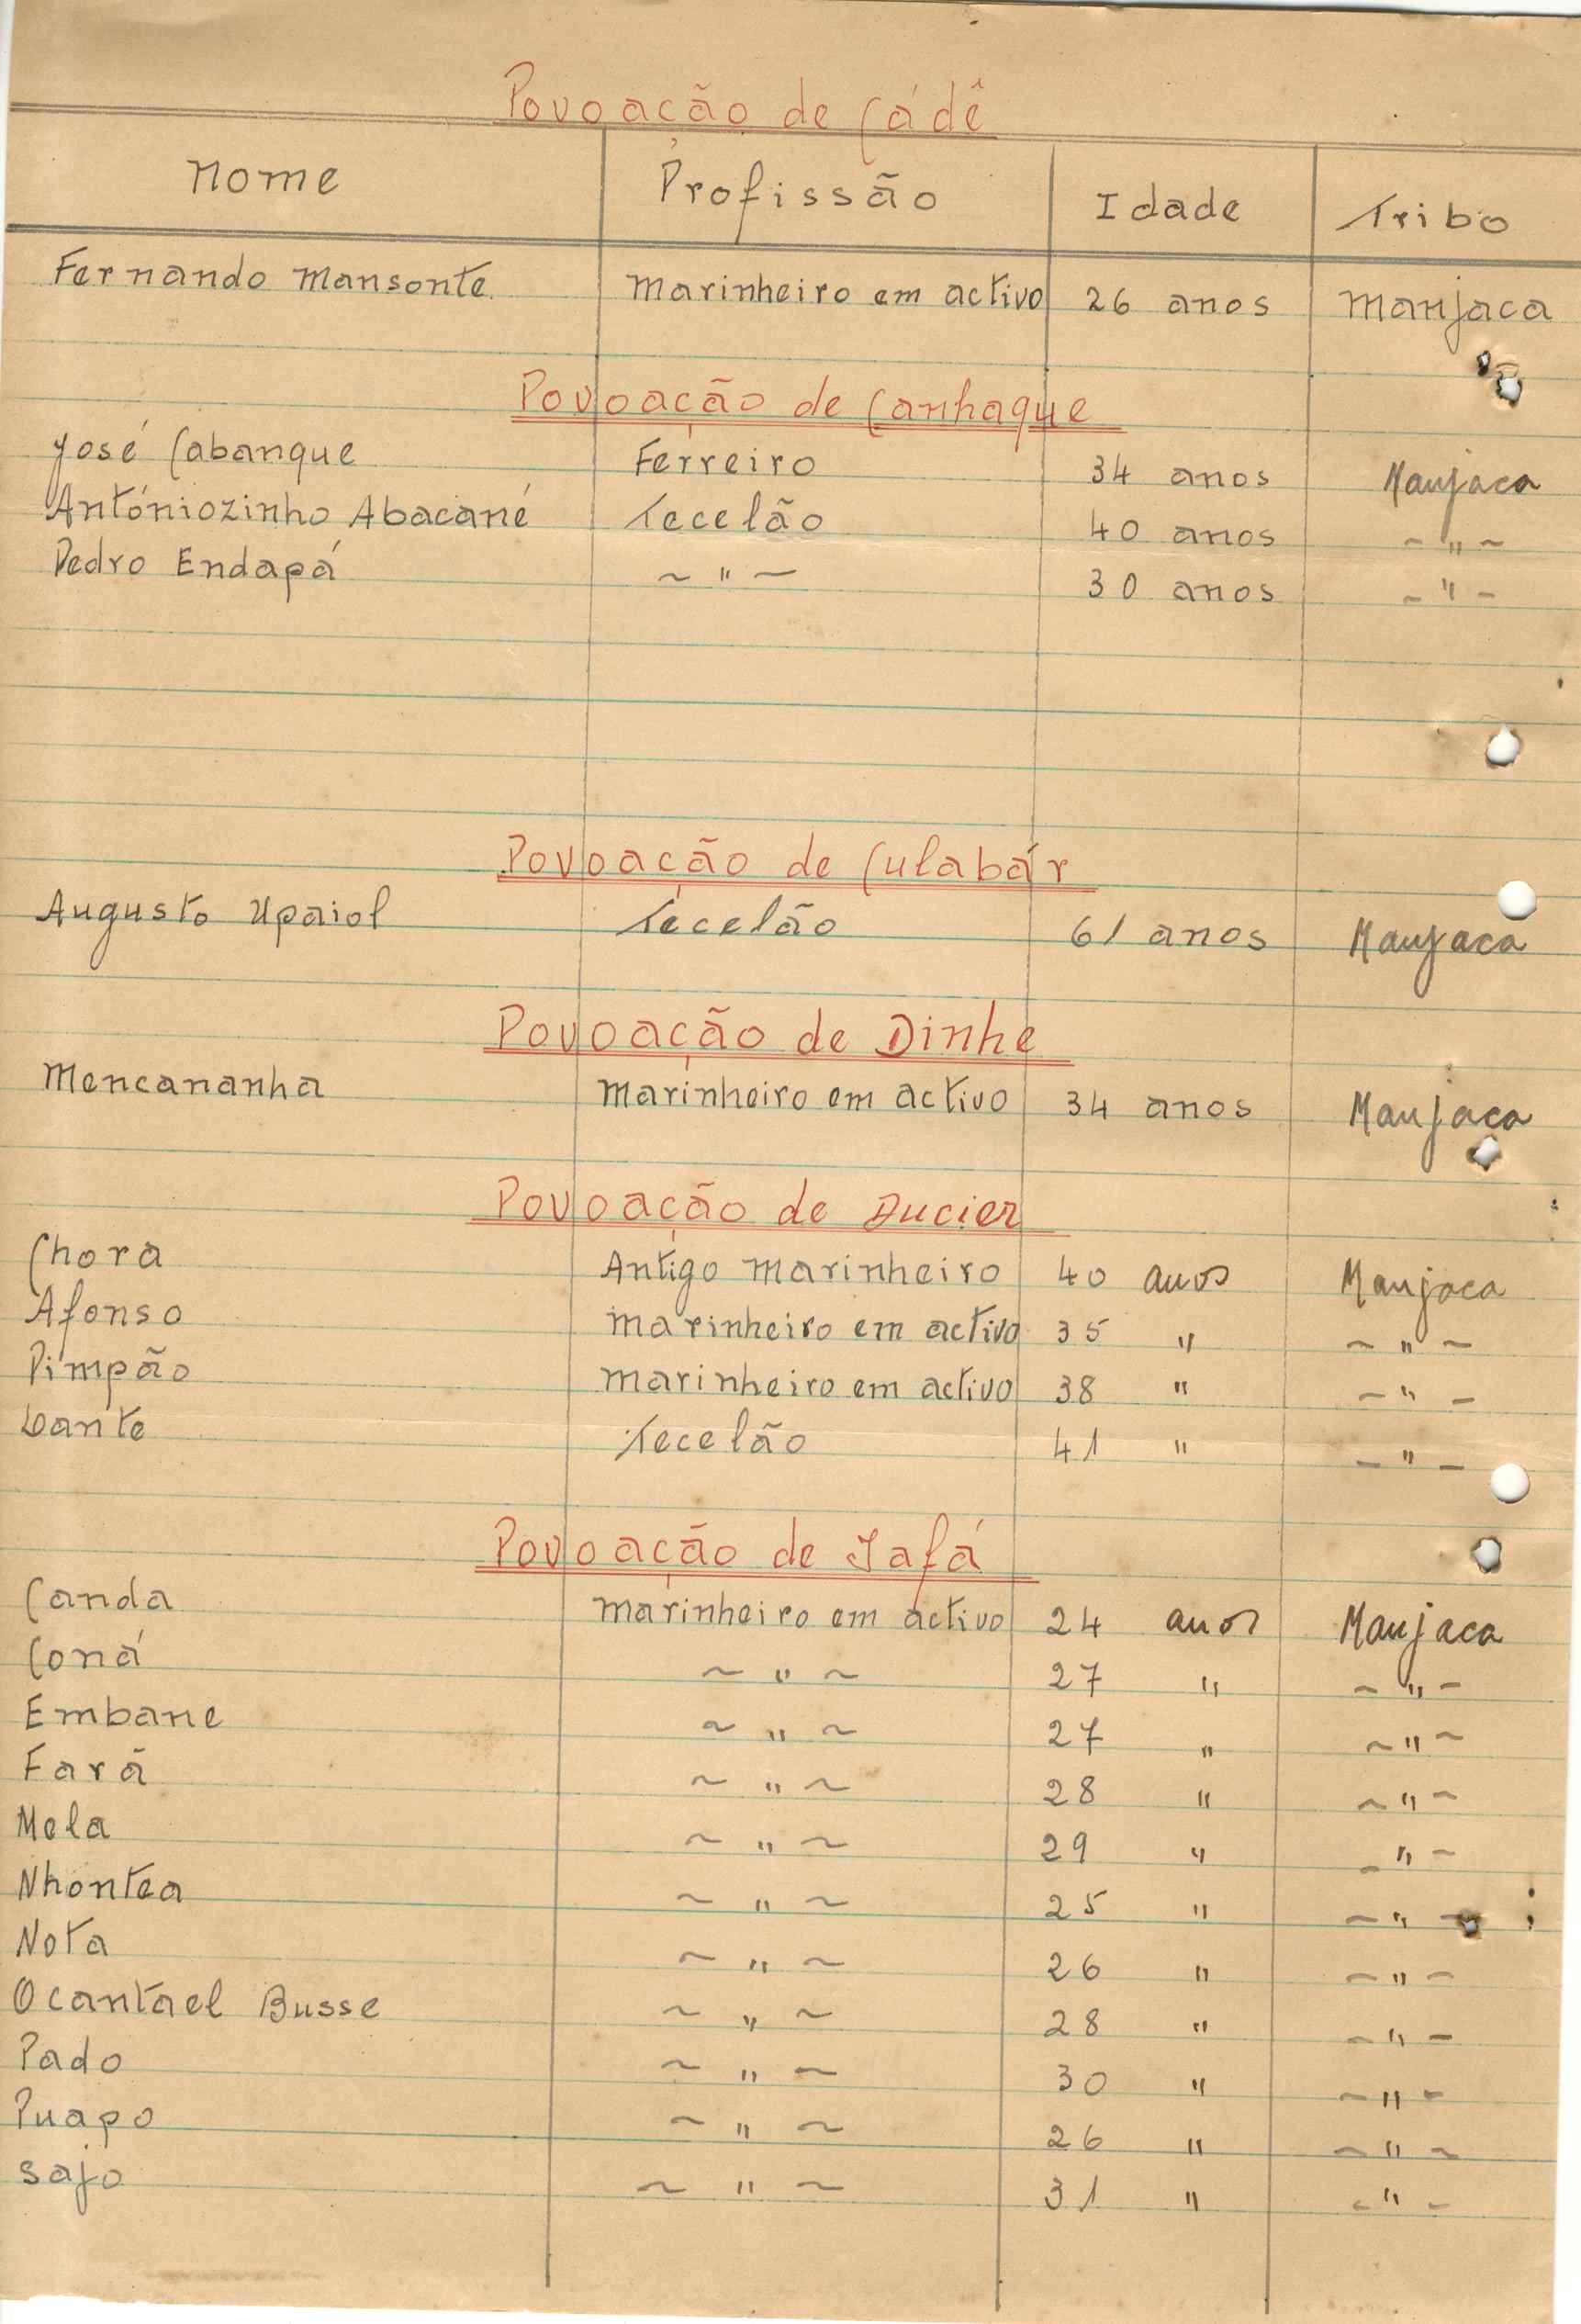 Povoação de Cádê
Nome Profissão Idade Tribo
Fernando Mansonte Marinheiro em activo 26 anos Manjaca
Povoação de Canhaque
José Cabanque Ferreiro 34 anos Manjaca
Antóniozinho Abacané Tecelão 40 anos ~ " ~
Pedro Endapá ~ " ~ 30 anos ~ " ~
Povoação de Culabár
Augusto Upaiol Tecelão 61 anos Manjaca
Povoação de Dinhe
Mencananha Marinheiro em activo 34 anos Manjaca
Povoação de Ducier
Chora Antigo Marinheiro 40 anos Manjaca
Afonso Marinheiro em activo 35 " ~ " ~
Pimpão Marinheiro em activo 38 " ~ " ~
Dante Tecelão 41 " ~ " ~
Povoação de Jafá
Canda Marinheiro em activo 24 anos Manjaca
Coná ~ " ~ 27 " ~ " ~
Embane ~ " ~ 27 " ~ " ~
Fará ~ " ~ 28 " ~ " ~
Mela ~ " ~ 29 " ~ " ~
Nhontea ~ " ~ 25 " ~ " ~
Nota ~ " ~ 26 " ~ " ~
Ocantael Busse ~ " ~ 28 " ~ " ~
Pado ~ " ~ 30 " ~ " ~
Puapo ~ " ~ 26 " ~ " ~
Sajo ~ " ~ 31 " ~ " ~